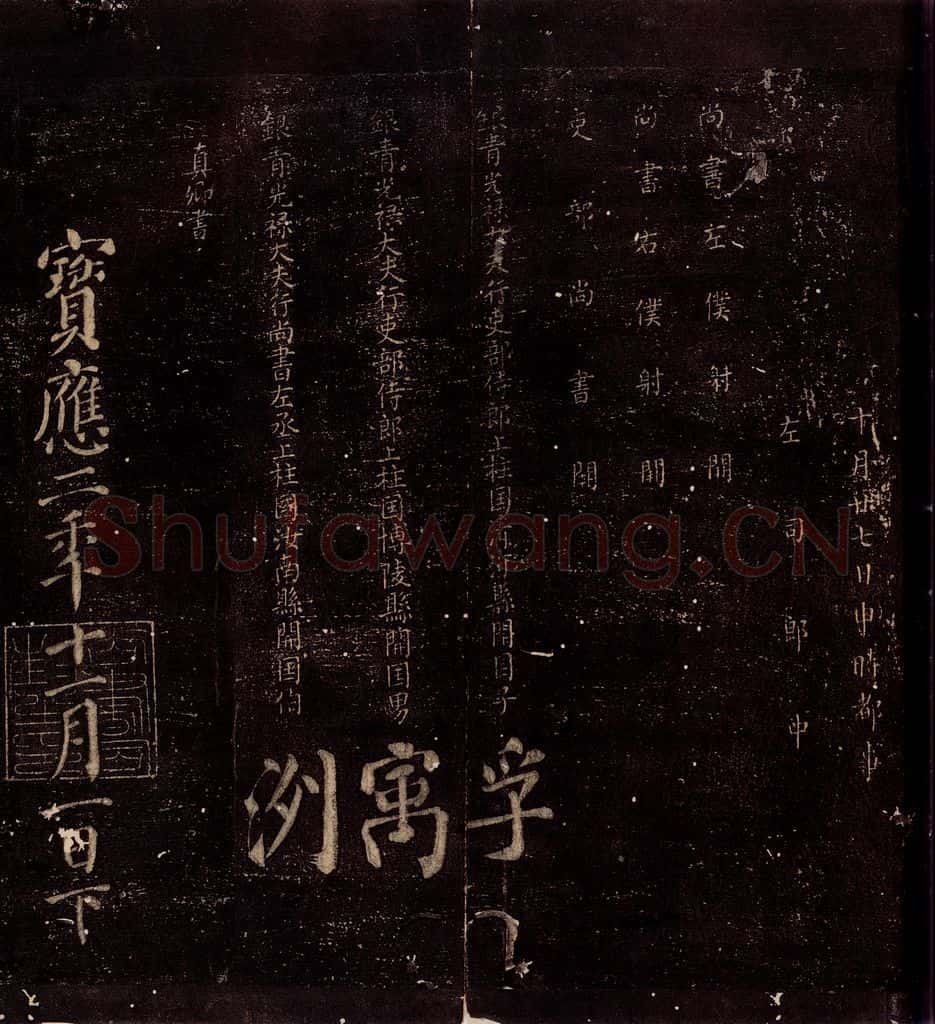 十月廿七日申時都事
左司郎中
尚書左僕射闕
尚書右僕射闕
吏部尚書闕
銀青光祿大夫行吏部侍郎上柱国縣開国子孚
銀青光祿大夫行吏部侍郎上柱国博陵縣開国男寓
銀青光祿大夫行尚書左丞上柱国濟南縣開国伯洌
真卿書
寶應二年十一月一日下
Shufawang.CN